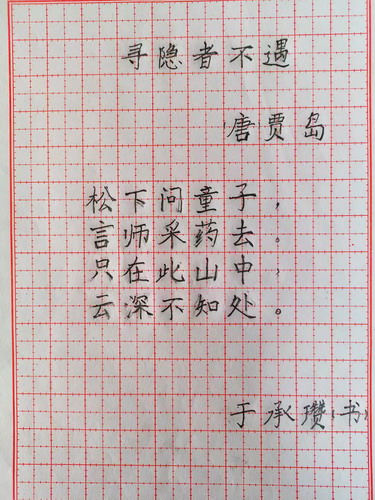 寻隐者不遇
唐贾岛
松下问童子，
言师采药去。
只在此山中；
云深不知处。
于承瓒（书）